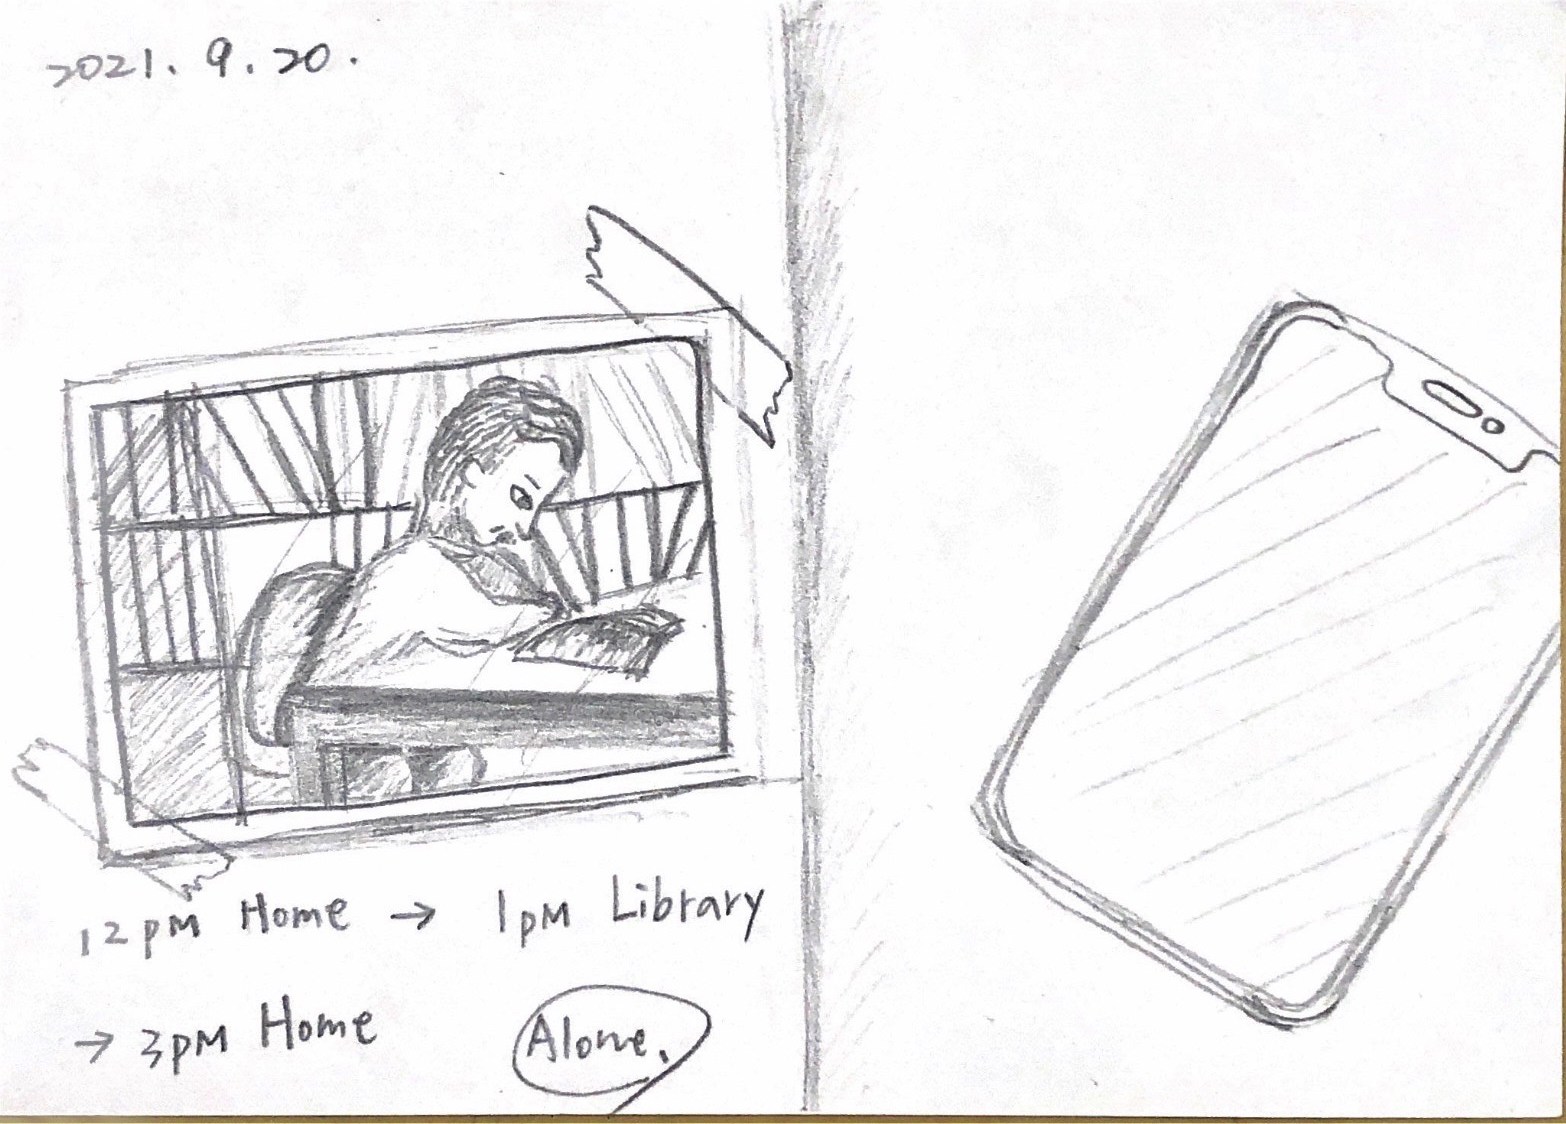 2021. 9. 20.
12pm Home → 1pm Library
→ 3pm Home
Alone.